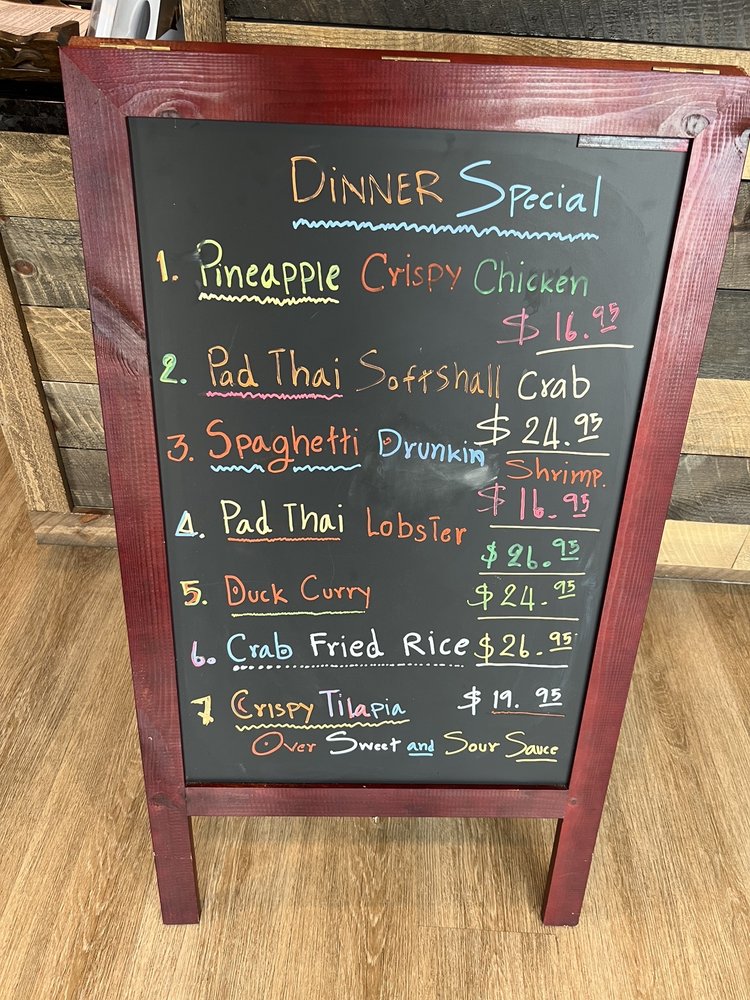 DINNER Special
1. Pineapple Crispy Chicken
$16.95
2. Pad Thai Softshall Crab
$24.95
3. Spaghetti Drunkin Shrimp.
$16.95
4. Pad Thai Lobster
$26.95
5. Duck Curry $24.95
6. Crab Fried Rice $26.95
7 Crispy Tilapia $19.95
Over Sweet and Sour Sauce